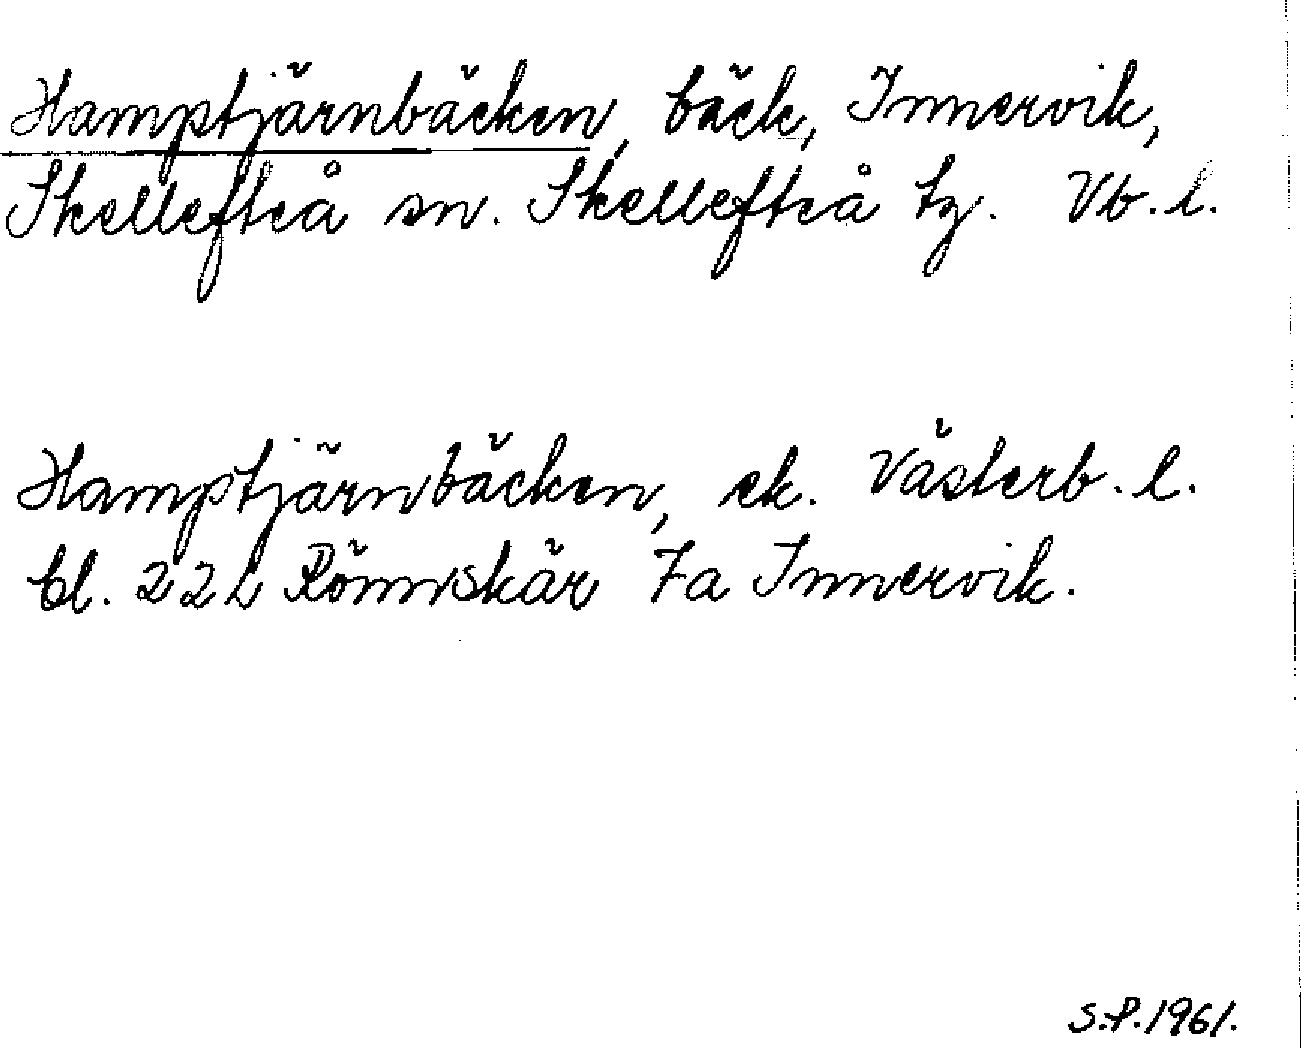 Hamptjärnbäcken, bäck, Innervik,
Skellefteå sn. Skellefteå tg. Vb. l.
Hamptjärnbäcken, ek. Västerb. l.
bl. 22 L Rönnskär 7a Innervik.
S.P. 1961.